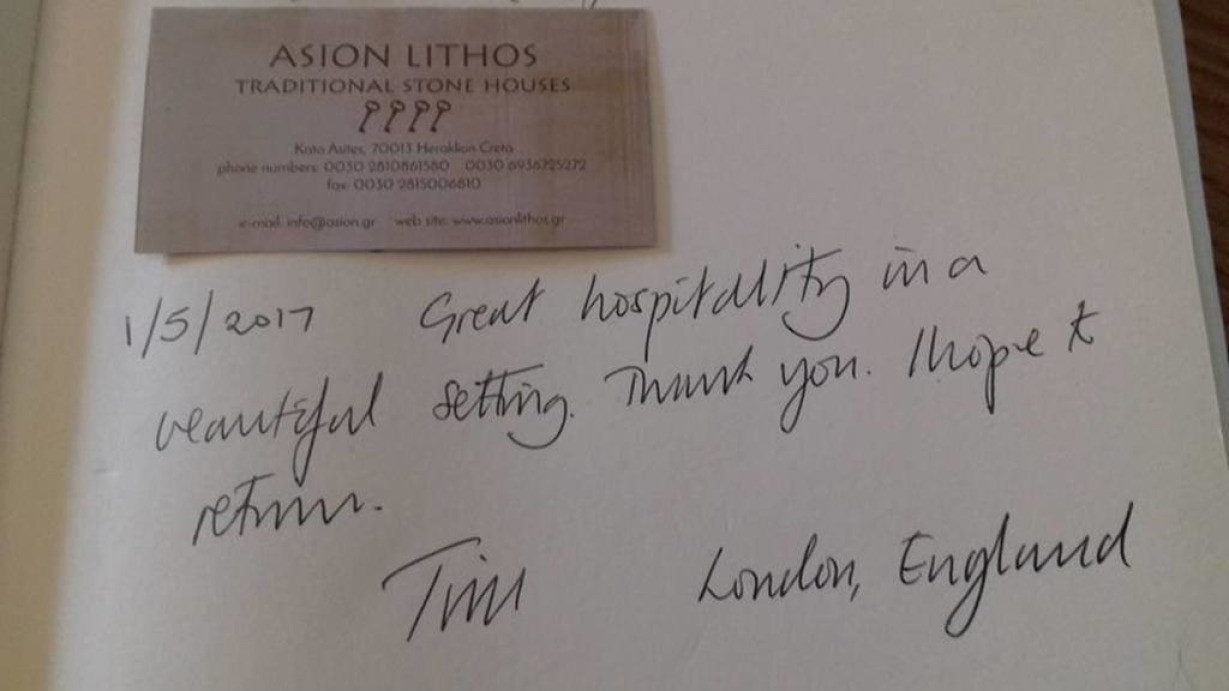 ASION LITHOS
TRADITIONAL STONE HOUSES
Kato Asites, 70013 Heraklion Creta
phone numbers: 0030 2810861580 0030 6936725272
fax: 0030 2815006810
e-mail: info@asion.gr web site: www.asionlithos.gr
1/5/2017 Great hospitality in a
beautiful setting. Thank you. I hope to
return.
Tim London, England